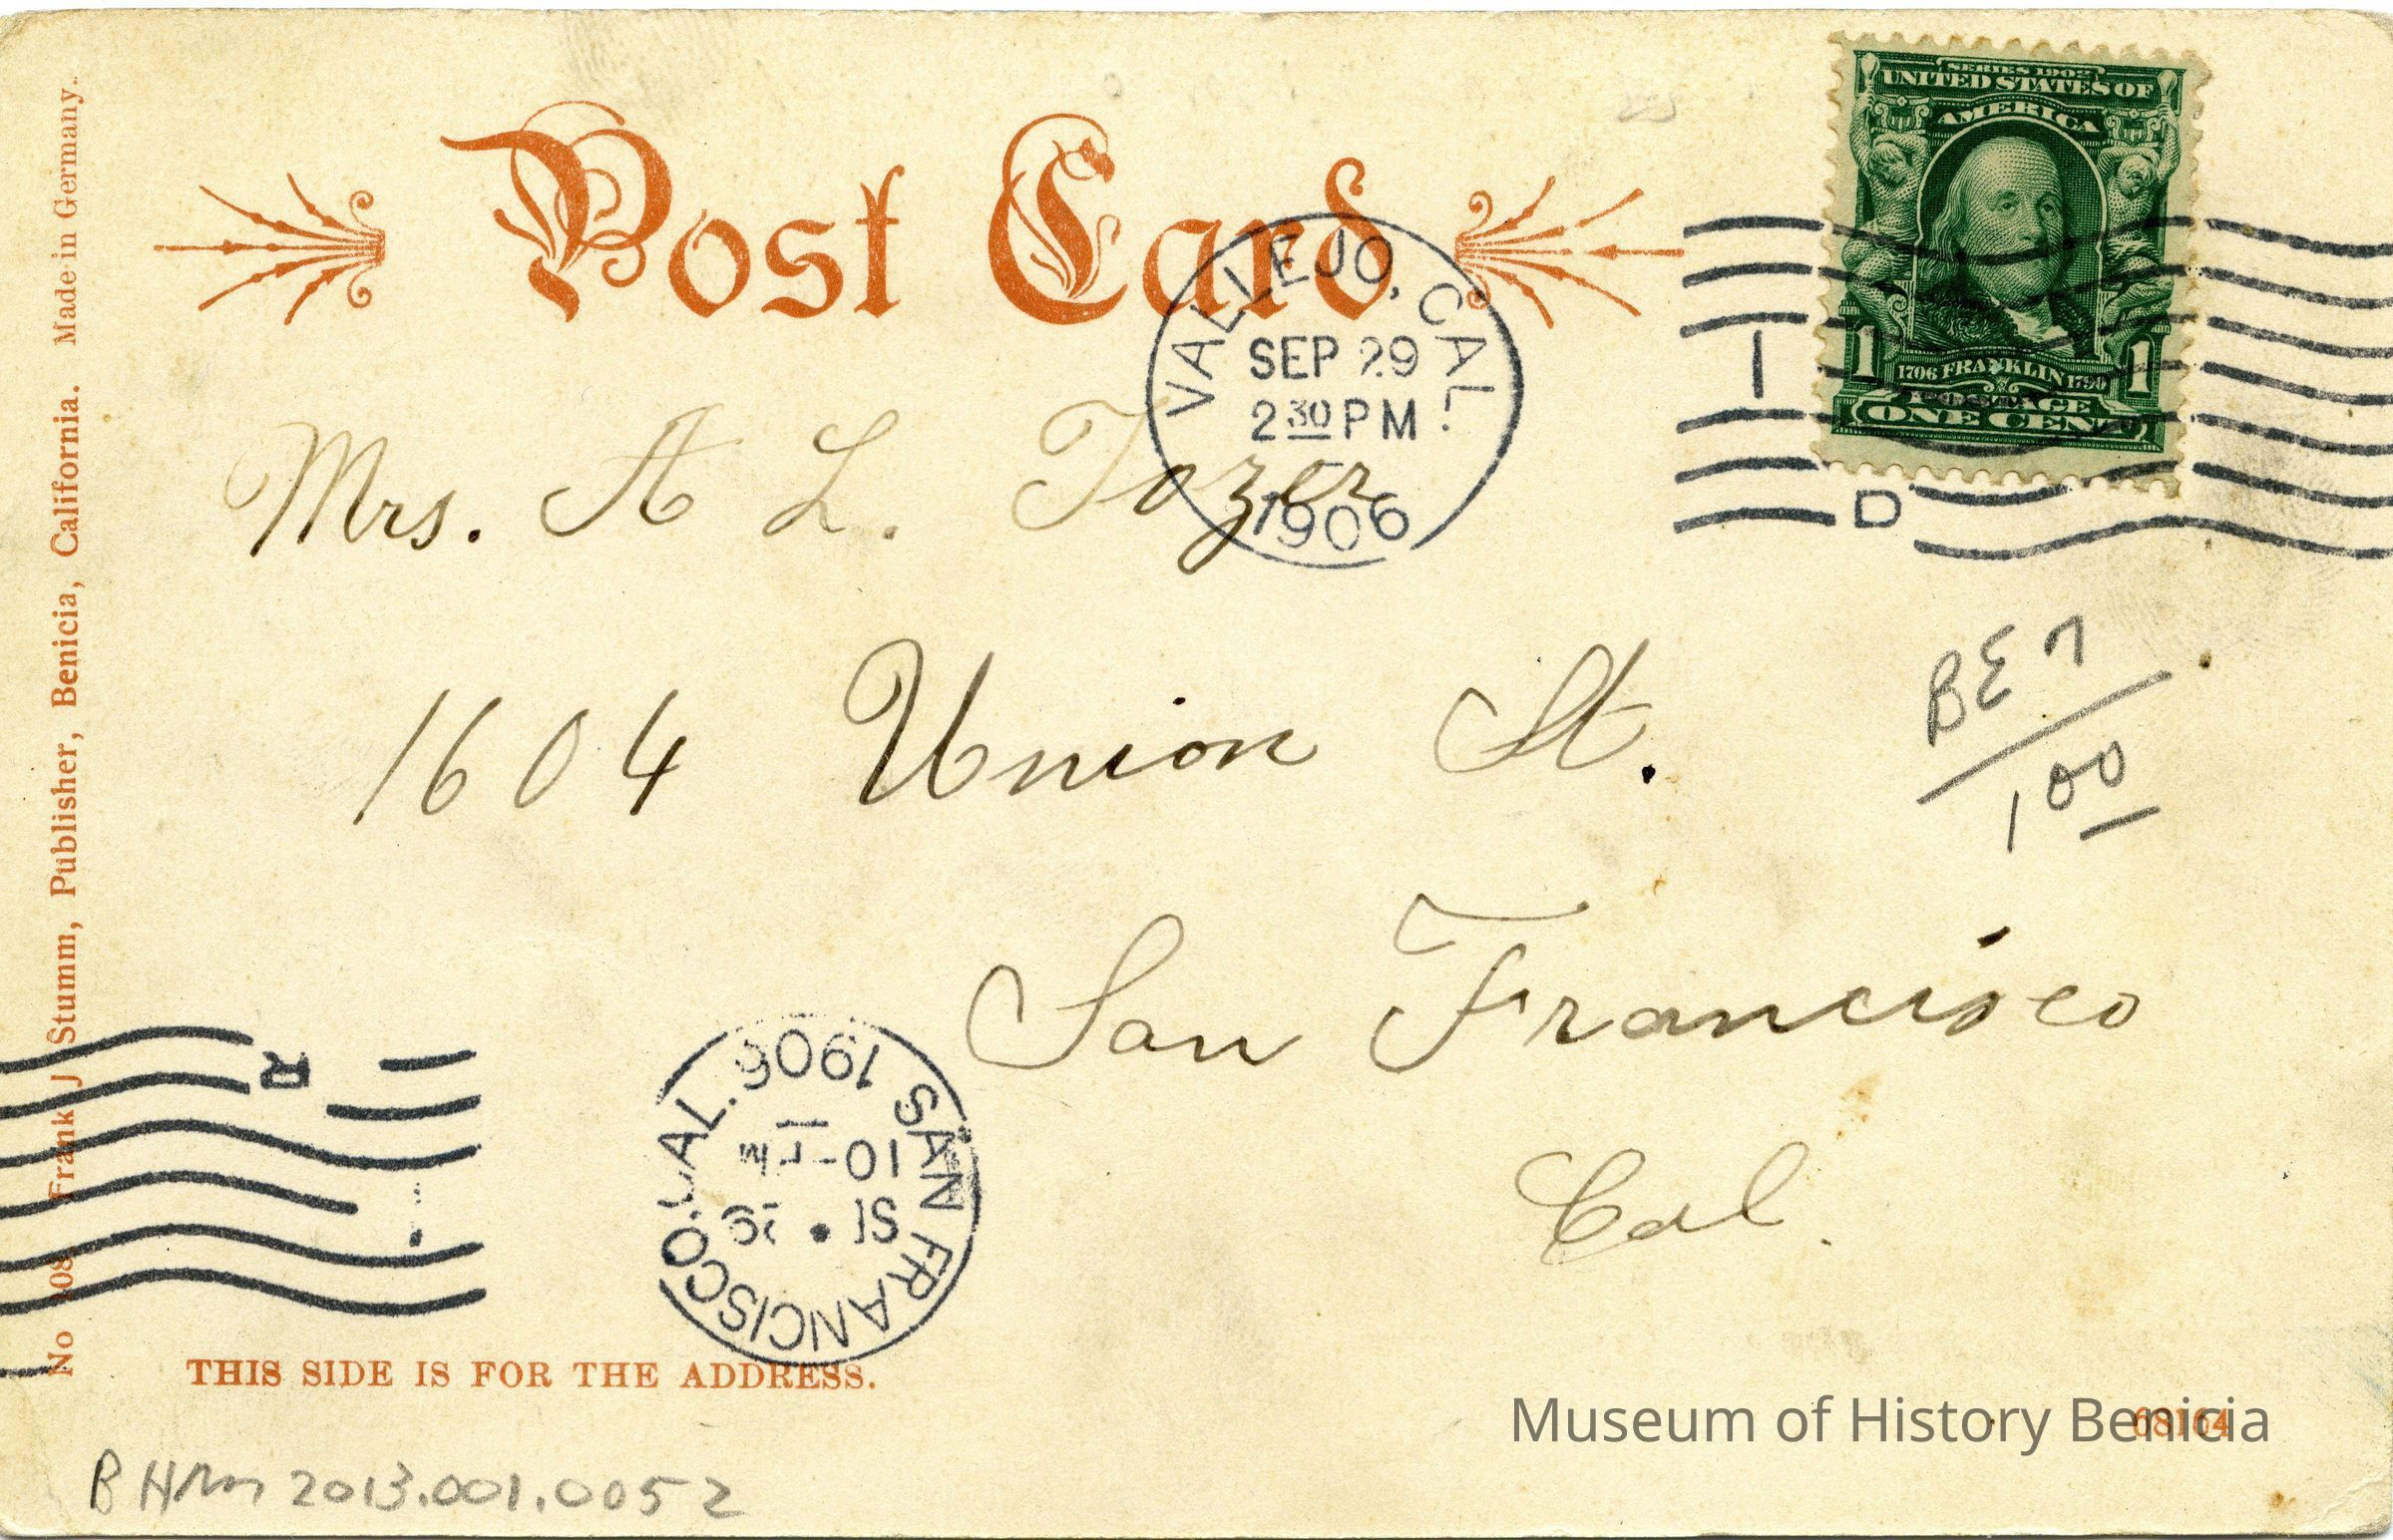 Post Card
SERIES 1902
UNITED STATES OF
AMERICA
1706 FRANKLIN 1790
1 1
ONE CENT
VALLEJO, CAL.
SEP 29
2 30 PM
1906
D
Mrs. A L. Tozer
1604 Union St.
San Francisco
Cal.
BEN
1 00
No Frank J Stumm, Publisher, Benicia, California. Made in Germany.
R
SAN FRANCISCO, CAL.
1906
10
THIS SIDE IS FOR THE ADDRESS.
Museum of History Benicia
68164
BHM 2013.001.0052